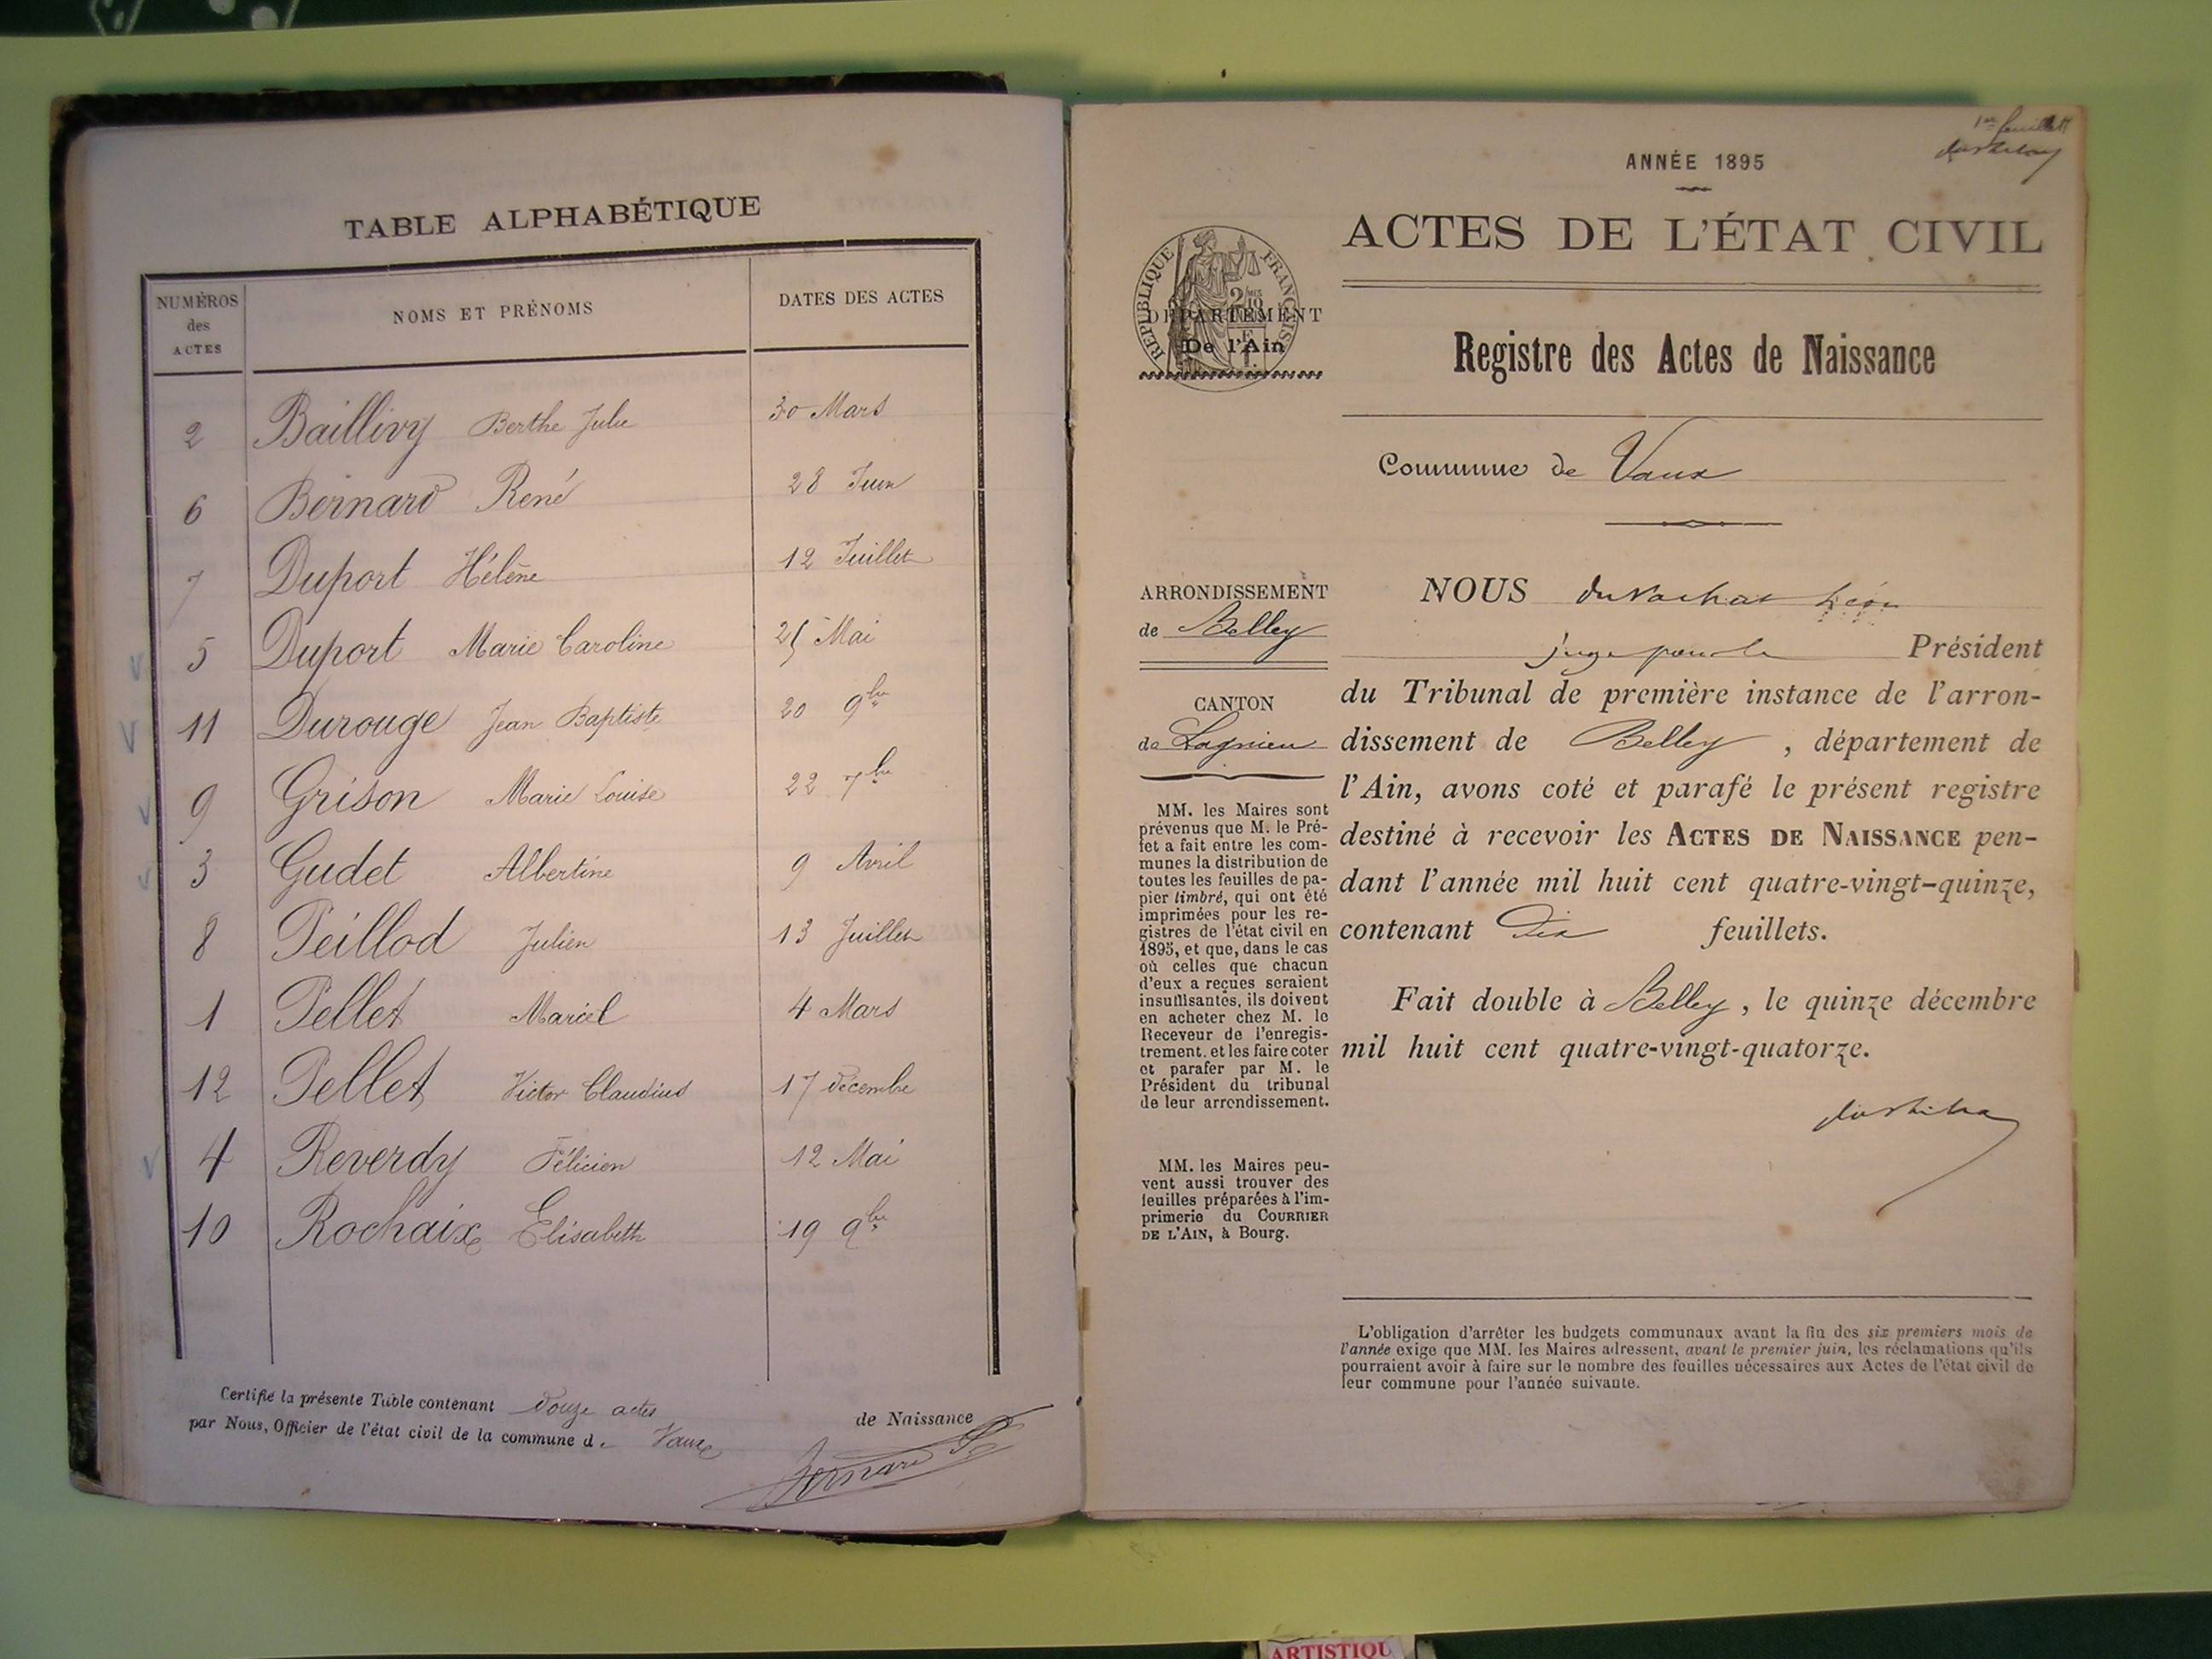 TABLE ALPHABÉTIQUE
NUMÉROS des ACTES
NOMS ET PRÉNOMS
DATES DES ACTES
2 Baillivy Berthe Julie 30 Mars
6 Bernard René 28 Juin
7 Duport Hélène 12 Juillet
5 Duport Marie Caroline 25 Mai
11 Durouge Jean Baptiste 20 9bre
9 Grison Marie Louise 22 7bre
3 Gudet Albertine 9 Avril
8 Peillod Julien 13 Juillet
1 Pellet Marcel 4 Mars
12 Pellet Victor Claudius 17 décembre
4 Reverdy Félicien 12 Mai
10 Rochaix Elisabeth 19 9bre
Certifié la présente Table contenant douze actes de Naissance
par Nous, Officier de l'état civil de la commune d. Vaux
Bernard
1er feuillet
ANNÉE 1895
ACTES DE L'ÉTAT CIVIL
RÉPUBLIQUE FRANÇAISE
DÉPARTEMENT
De l'Ain
Registre des Actes de Naissance
Commune de Vaux
ARRONDISSEMENT
de Belley
CANTON
de Lagnieu
MM. les Maires sont
prévenus que M. le Pré-
fet a fait entre les com-
munes la distribution de
toutes les feuilles de pa-
pier timbré, qui ont été
imprimées pour les re-
gistres de l'état civil en
1895, et que, dans le cas
où celles que chacun
d'eux a reçues seraient
insuffisantes, ils doivent
en acheter chez M. le
Receveur de l'enregis-
trement, et les faire coter
et parafer par M. le
Président du tribunal
de leur arrondissement.
MM. les Maires peu-
vent aussi trouver des
feuilles préparées à l'im-
primerie du COURRIER
DE L'AIN, à Bourg.
NOUS Léon
juge pour le Président
du Tribunal de première instance de l'arron-
dissement de Belley, département de
l'Ain, avons coté et parafé le présent registre
destiné à recevoir les ACTES DE NAISSANCE pen-
dant l'année mil huit cent quatre-vingt-quinze,
contenant Dix feuillets.
Fait double à Belley, le quinze décembre
mil huit cent quatre-vingt-quatorze.
L'obligation d'arrêter les budgets communaux avant la fin des six premiers mois de
l'année exige que MM. les Maires adressent, avant le premier juin, les réclamations qu'ils
pourraient avoir à faire sur le nombre des feuilles nécessaires aux Actes de l'état civil de
leur commune pour l'année suivante.
ARTISTIQU